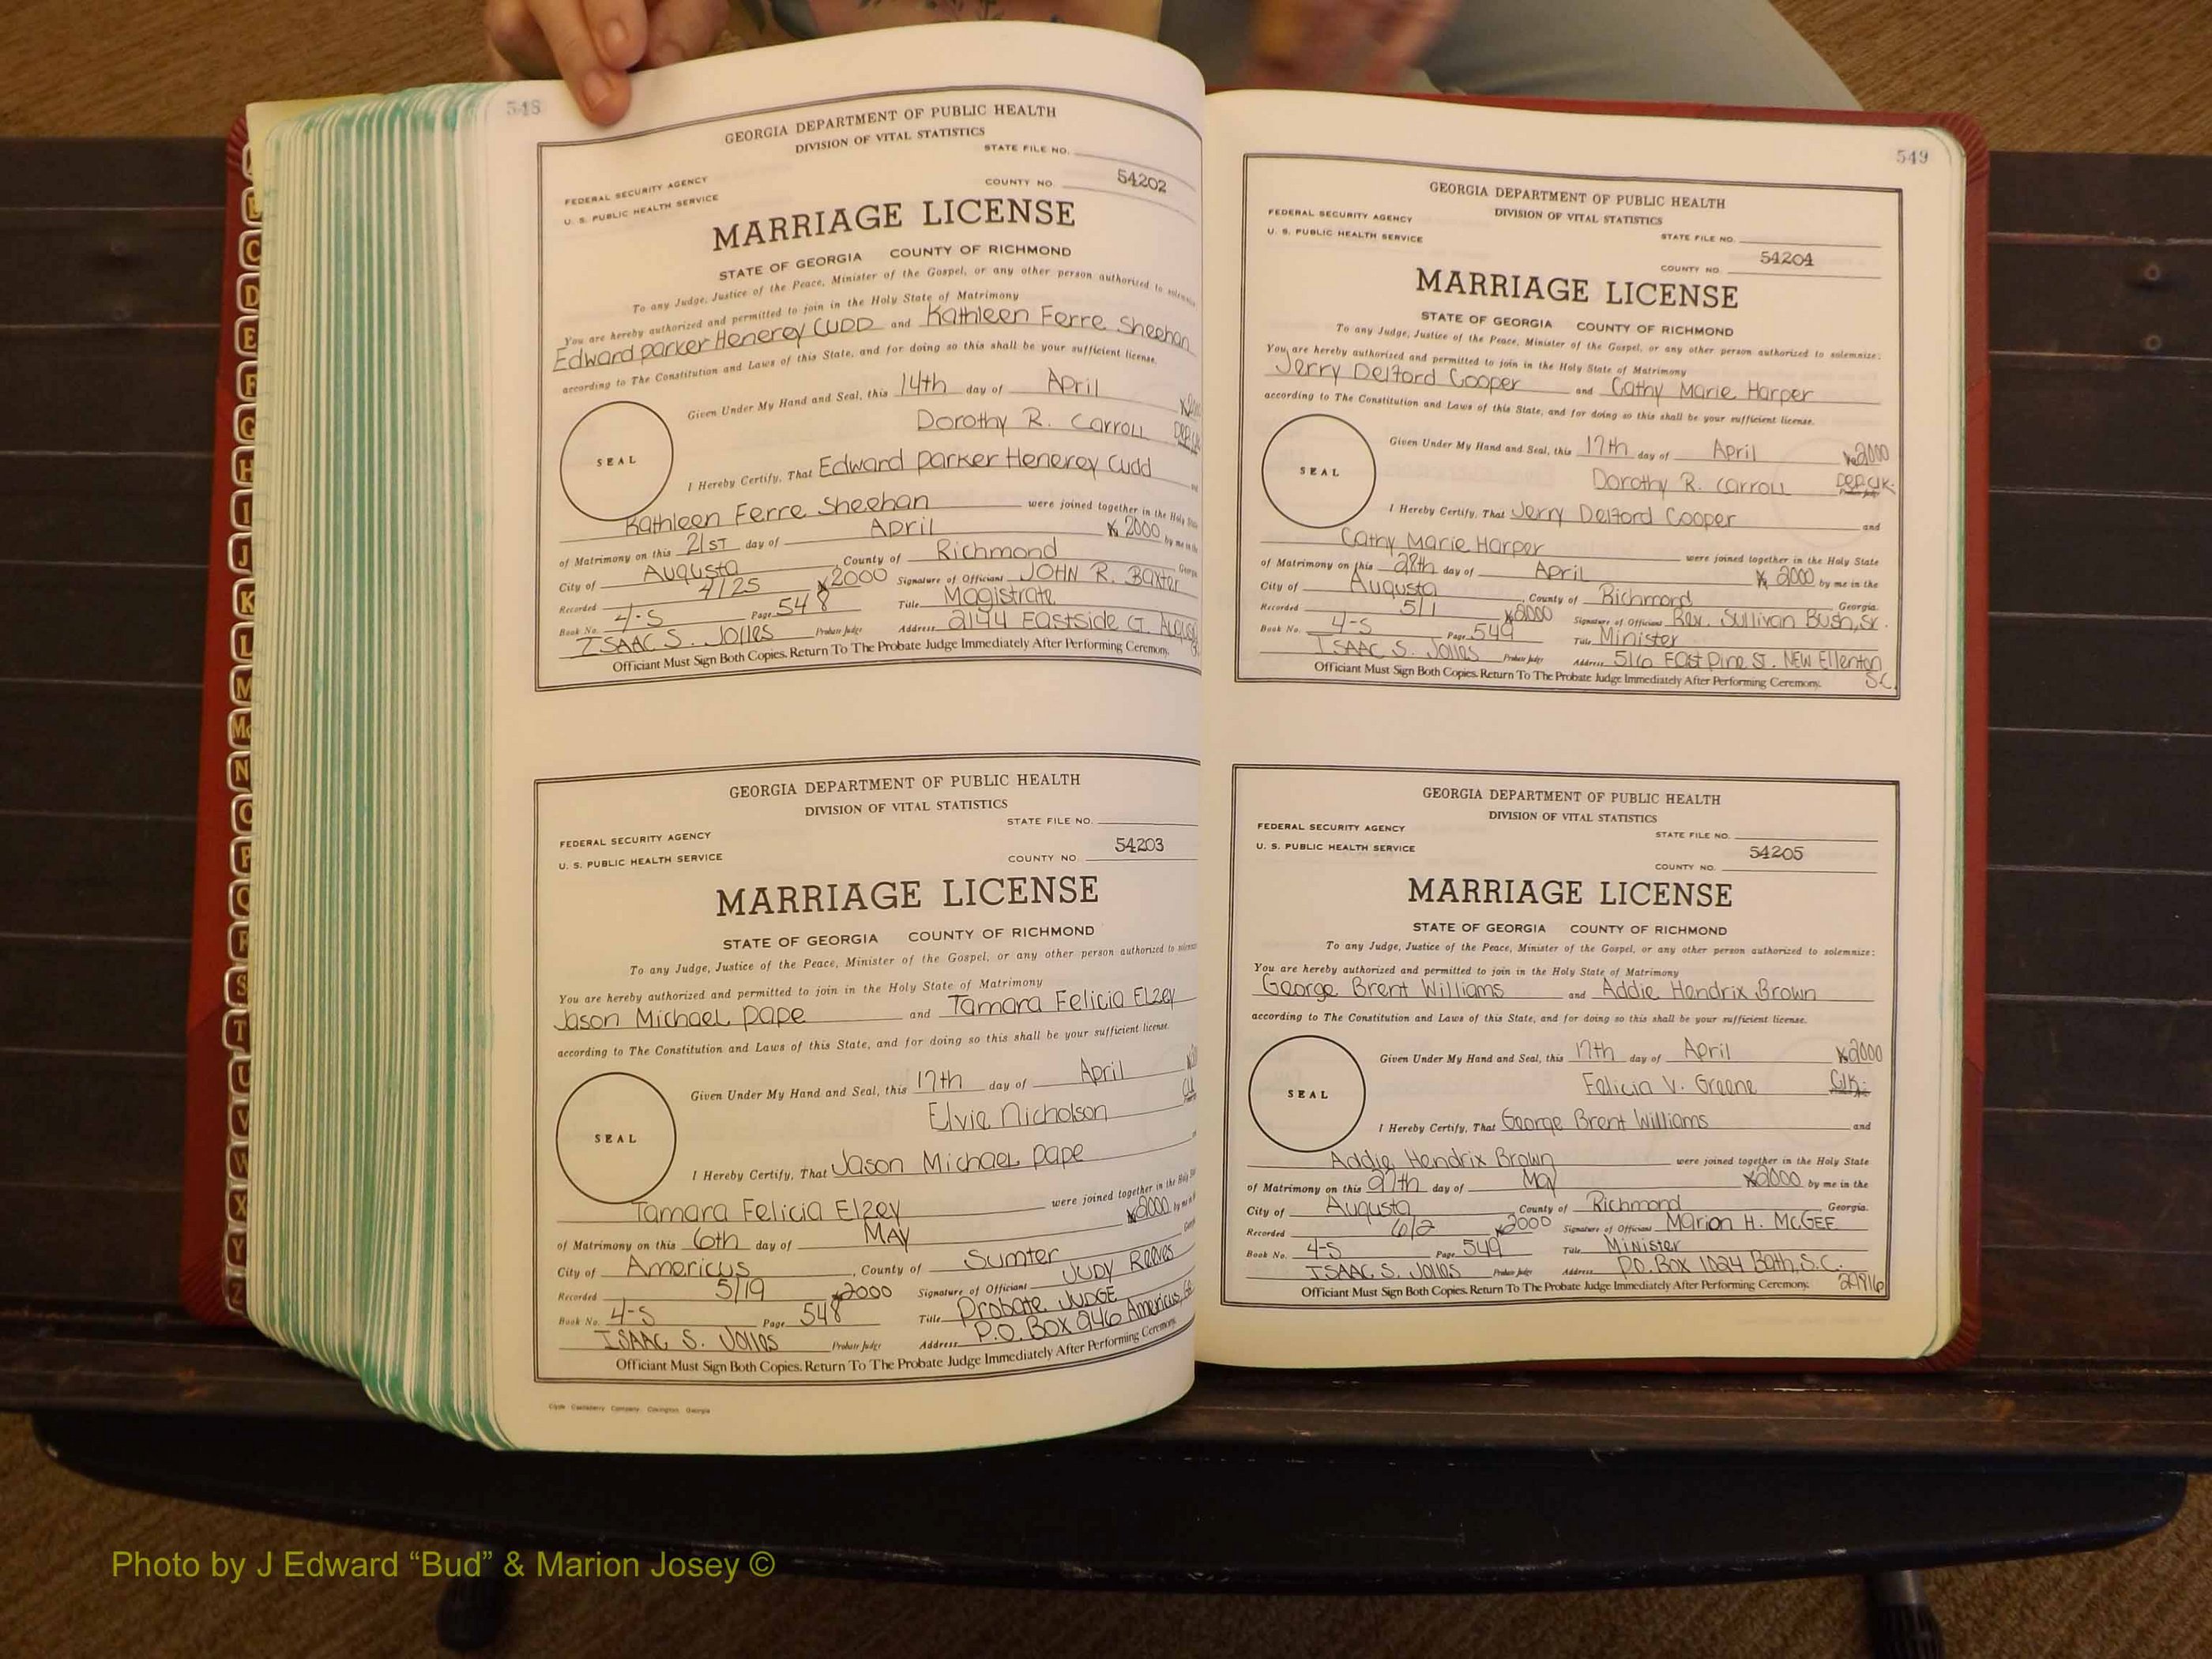 548
GEORGIA DEPARTMENT OF PUBLIC HEALTH
DIVISION OF VITAL STATISTICS
STATE FILE NO.
FEDERAL SECURITY AGENCY
U. S. PUBLIC HEALTH SERVICE
COUNTY NO. 54202
MARRIAGE LICENSE
STATE OF GEORGIA COUNTY OF RICHMOND
To any Judge, Justice of the Peace, Minister of the Gospel, or any other person authorized to
You are hereby authorized and permitted to join in the Holy State of Matrimony
Edward parker Henerey CUDD and Kathleen Ferre Sheehan
according to The Constitution and Laws of this State, and for doing so this shall be your sufficient license.
Given Under My Hand and Seal, this 14th day of April
Dorothy R. Carroll
SEAL
I Hereby Certify, That Edward parker Henerey Cudd
Kathleen Ferre Sheehan were joined together in the Holy
of Matrimony on this 21ST day of April 2000 by me in the
City of Augusta County of Richmond
Recorded 4/25 2000 Signature of Officiant JOHN R. Baxter
Book No. 4-S Page 548 Title Magistrate
ISAAC S. Jolles Probate Judge Address 2144 Eastside
Officiant Must Sign Both Copies. Return To The Probate Judge Immediately After Performing Ceremony.
GEORGIA DEPARTMENT OF PUBLIC HEALTH
DIVISION OF VITAL STATISTICS
STATE FILE NO.
FEDERAL SECURITY AGENCY
U. S. PUBLIC HEALTH SERVICE
COUNTY NO. 54203
MARRIAGE LICENSE
STATE OF GEORGIA COUNTY OF RICHMOND
To any Judge, Justice of the Peace, Minister of the Gospel, or any other person authorized to
You are hereby authorized and permitted to join in the Holy State of Matrimony
Jason Michael pape and Tamara Felicia Elzey
according to The Constitution and Laws of this State, and for doing so this shall be your sufficient license.
Given Under My Hand and Seal, this 17th day of April
Elvie Nicholson
SEAL
I Hereby Certify, That Jason Michael pape
Tamara Felicia Elzey were joined together in the Holy
of Matrimony on this 6th day of MAY 2000
City of Americus, County of Sumter
Recorded 5/19 2000 Signature of Officiant JUDY Reeves
Book No. 4-S Page 548 Title Probate JUDGE
ISAAC S. Jolles Probate Judge Address P.O. BOX 246 Americus, Ga
Officiant Must Sign Both Copies. Return To The Probate Judge Immediately After Performing Ceremony.
549
GEORGIA DEPARTMENT OF PUBLIC HEALTH
DIVISION OF VITAL STATISTICS
FEDERAL SECURITY AGENCY
U. S. PUBLIC HEALTH SERVICE
STATE FILE NO.
COUNTY NO. 54204
MARRIAGE LICENSE
STATE OF GEORGIA COUNTY OF RICHMOND
To any Judge, Justice of the Peace, Minister of the Gospel, or any other person authorized to solemnize:
You are hereby authorized and permitted to join in the Holy State of Matrimony
Jerry Delford Cooper and Cathy Marie Harper
according to The Constitution and Laws of this State, and for doing so this shall be your sufficient license.
Given Under My Hand and Seal, this 17th day of April 2000
Dorothy R. Carroll DEP. Clk.
SEAL
I Hereby Certify, That Jerry Delford Cooper and
Cathy Marie Harper were joined together in the Holy State
of Matrimony on this 28th day of April 2000 by me in the
City of Augusta, County of Richmond Georgia.
Recorded 5/1 2000 Signature of Officiant Rev. Sullivan Bush, Sr.
Book No. 4-S Page 549 Title Minister
ISAAC S. Jolles Probate Judge Address 516 East Pine St. NEW Ellenton
S.C.
Officiant Must Sign Both Copies. Return To The Probate Judge Immediately After Performing Ceremony.
GEORGIA DEPARTMENT OF PUBLIC HEALTH
DIVISION OF VITAL STATISTICS
FEDERAL SECURITY AGENCY
STATE FILE NO.
U. S. PUBLIC HEALTH SERVICE
COUNTY NO. 54205
MARRIAGE LICENSE
STATE OF GEORGIA COUNTY OF RICHMOND
To any Judge, Justice of the Peace, Minister of the Gospel, or any other person authorized to solemnize:
You are hereby authorized and permitted to join in the Holy State of Matrimony
George Brent Williams and Addie Hendrix Brown
according to The Constitution and Laws of this State, and for doing so this shall be your sufficient license.
Given Under My Hand and Seal, this 17th day of April 2000
Felicia V. Greene Clk.
SEAL
I Hereby Certify, That George Brent Williams and
Addie Hendrix Brown were joined together in the Holy State
of Matrimony on this 27th day of May 2000 by me in the
City of Augusta County of Richmond Georgia.
Recorded 6/2 2000 Signature of Officiant Marion H. McGEE
Book No. 4-S Page 549 Title Minister
ISAAC S. Jolles Probate Judge Address P.O. Box 1024 Bath, S.C.
Officiant Must Sign Both Copies. Return To The Probate Judge Immediately After Performing Ceremony. 29816
C
D
E
F
G
H
I
J
K
L
M
Mc
N
O
P
Q
R
S
T
U
V
W
X
Y
Z
Photo by J Edward “Bud” & Marion Josey ©